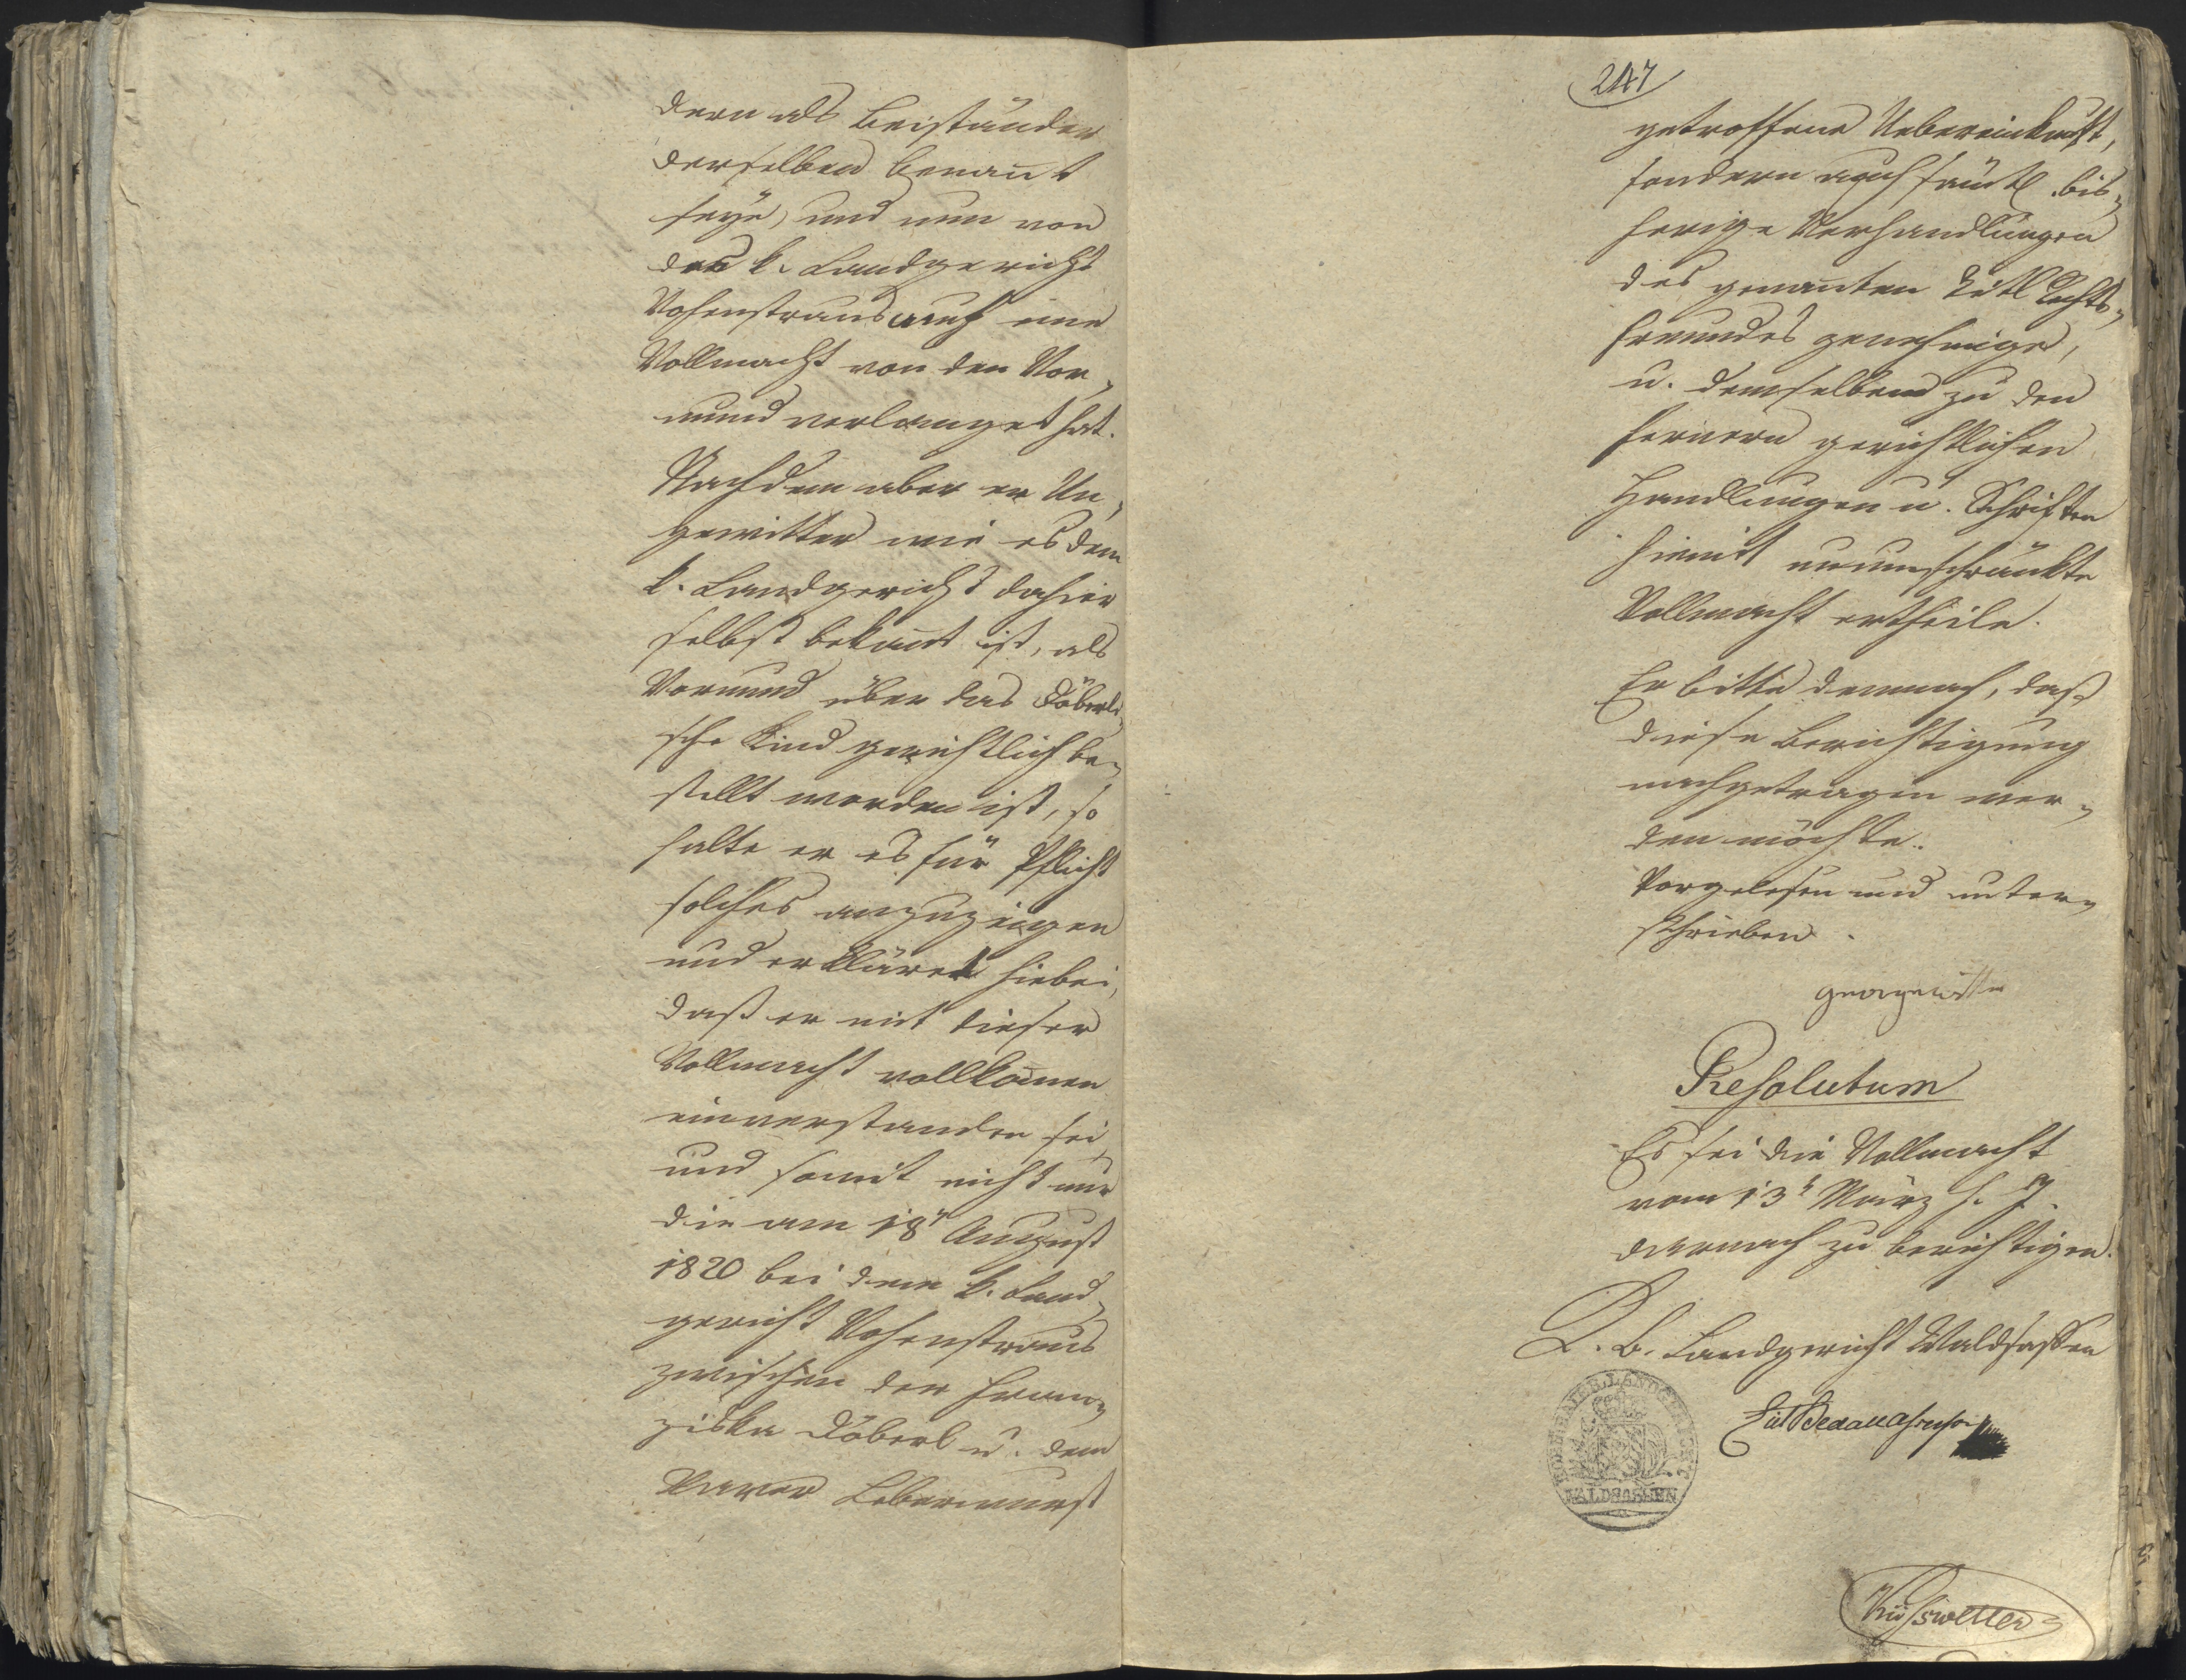 dern als Beiständer
derselben benan̄t
seye, und nun von
das k. Landgericht
Vohenstraus auch eine
Vollmacht von den Vor„
mund verlanget hat.
Nachdem aber er Un„
gewitter wie es dem
k. Landgericht dahier
selbst bekan̄t ist, als
Vormund über das Döberli„
sche Kind gerichtlich be„
stellt worden ist, so
halte er es für Pflicht
solches anzuzeigen
und erkläret hiebei,
daß er mit dieser
Vollmacht vollkom̄en
einverstanden sei,
und somit nicht nur
die am 18t August
1820 bei dem k. Land„
gericht Vohenstraus
zwischen der Fran„
ziska Döberl u. dem
Xaver Leberwurst
247
getroffene Uebereinkunft,
sondern auch sämtl. bis„
herige Verhandlungen
des genan̄ten Titl Rechts„
freundes genehmige,
u. demselben zu den
fernern gerichtlichen
Handlungen u. Schriften
hiemit unumschränkte
Vollmacht ertheile.
Er bitte demnach, daß
diese Berichtigung
nachgetragen wer„
den möchte.
Vorgelesen und unter„
schrieben.
Resolutum
Es sei die Vollmacht
vom 13t März h. J.
darnach zu berichtigen.
K. B. Landgericht Waldsassen
KOENIG. BAIER. LANDGERICHT
WALDSASSEN